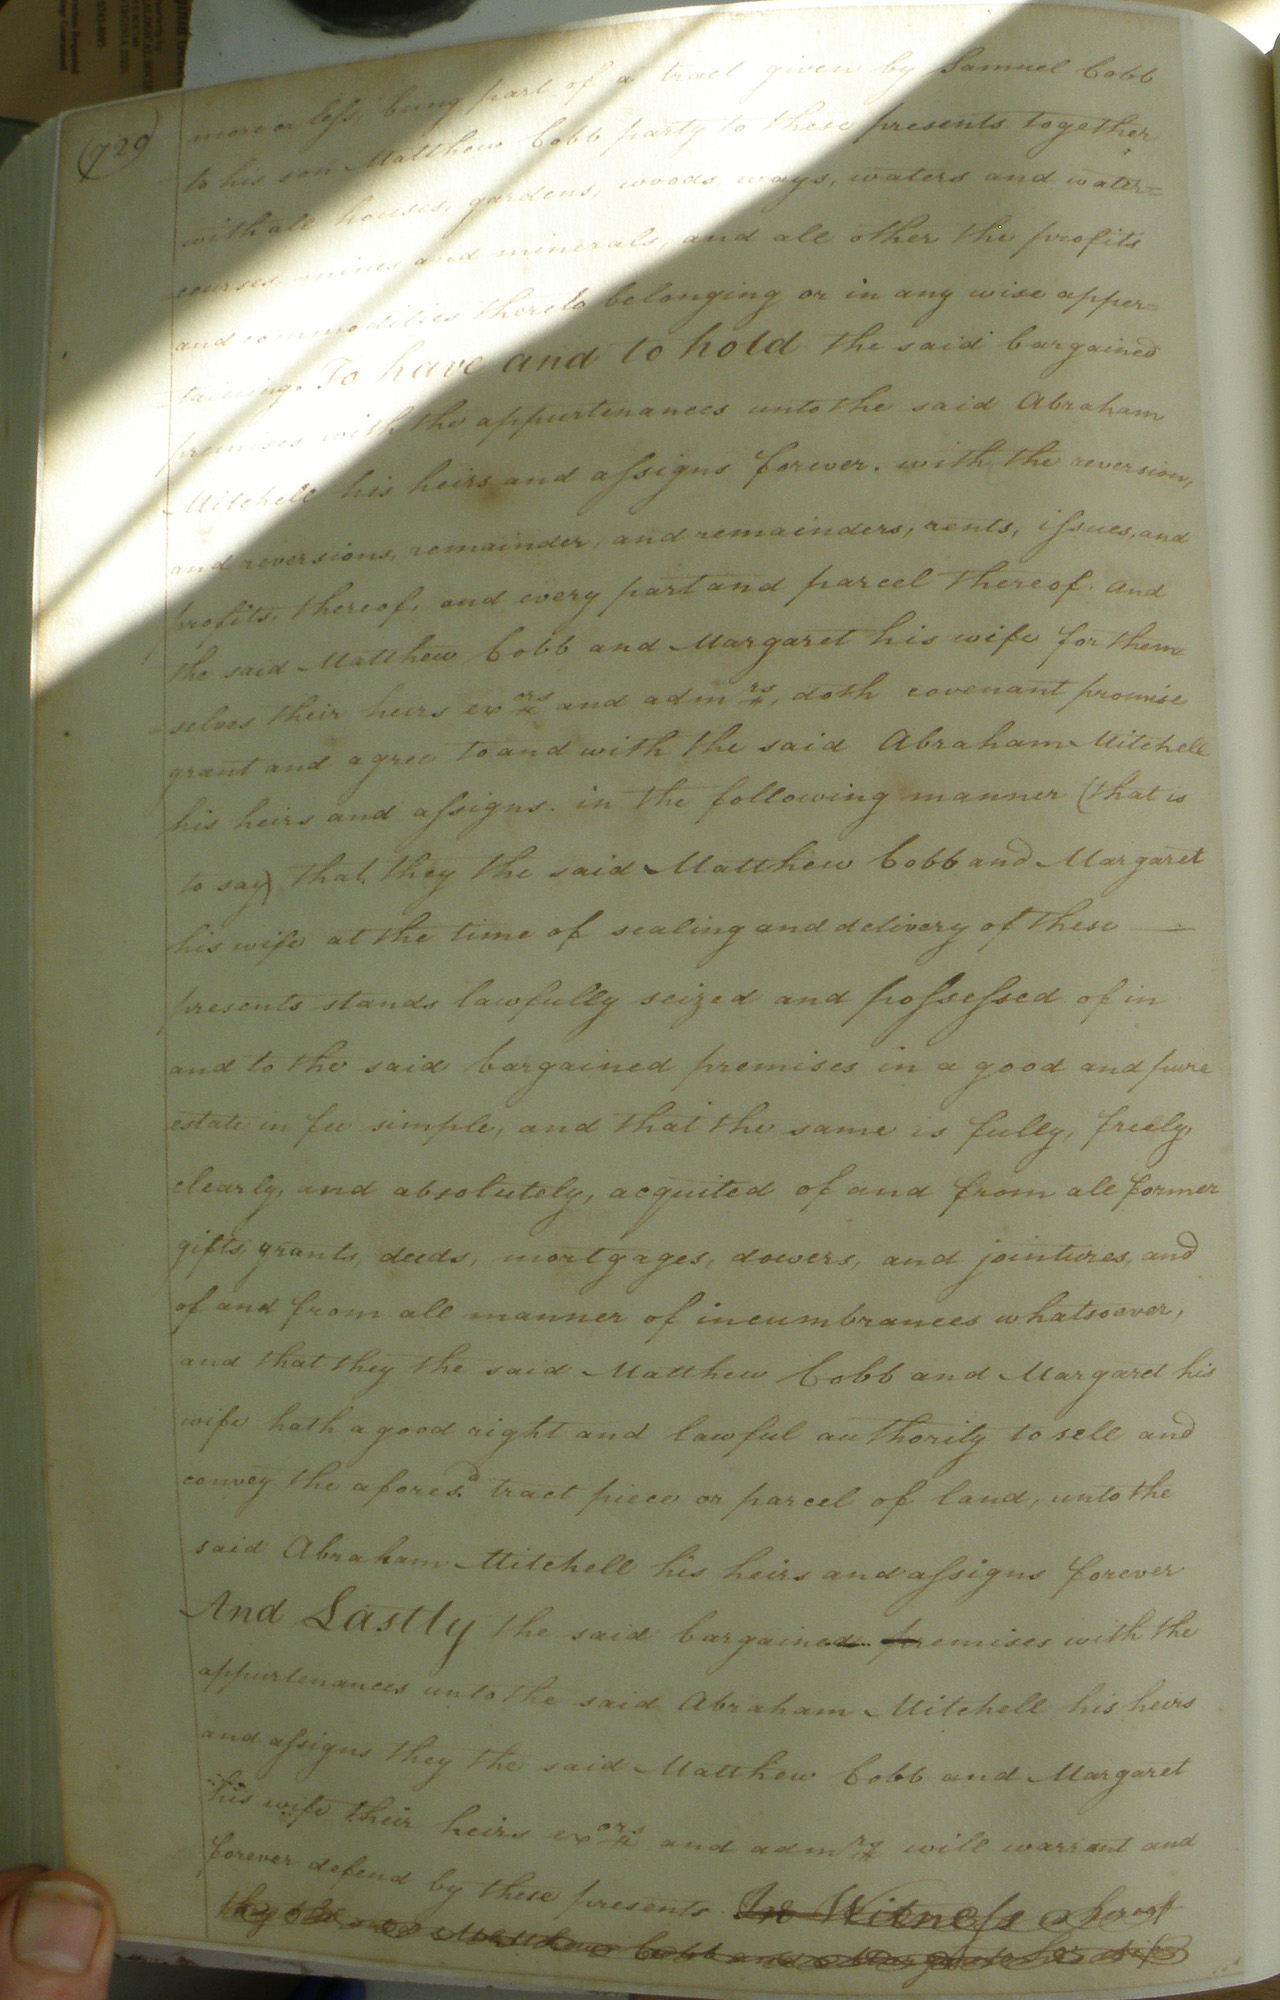 (729)
more or less, being part of a tract given by Samuel Cobb
to his son Matthew Cobb party to these presents together
with all houses, gardens, woods, ways, waters and water=
courses mines and minerals, and all other the profits
and commodities thereto belonging or in any wise apper=
=taining. To have and to hold the said bargained
premises with the appurtenances unto the said Abraham
Mitchell his heirs and assigns forever. with the reversion,
and reversions, remainder, and remainders, rents, issues, and
profits, thereof, and every part and parcel thereof. and
the said Matthew Cobb and Margaret his wife for them
=selves their heirs exors and admrs, doth covenant promise
grant and agree to and with the said Abraham Mitchell
his heirs and assigns. in the following manner (that is
to say) that, they the said Matthew Cobb and Margaret
his wife at the time of sealing and delivery of these —
presents stands lawfully seized and possessed of in
and to the said bargained premises in a good and pure
estate in fee simple, and that the same is fully, freely,
clearly, and absolutely, acquited of and from all former
gifts, grants, deeds, mortgages, dowers, and jointures, and
of and from all manner of incumbrances whatsoever,
and that they the said Matthew Cobb and Margaret his
wife hath a good right and lawful authority to sell and
convey the afores.d tract piece or parcel of land, unto the
said Abraham Mitchell his heirs and assigns forever
And Lastly the said bargained premises with the
appurtenances unto the said Abraham Mitchell his heirs
and assigns they the said Matthew Cobb and Margaret
his wife their heirs exors and admrs will warrant and
forever defend by these presents. In Witness whereof
they the said Matthew Cobb and Margaret his wife